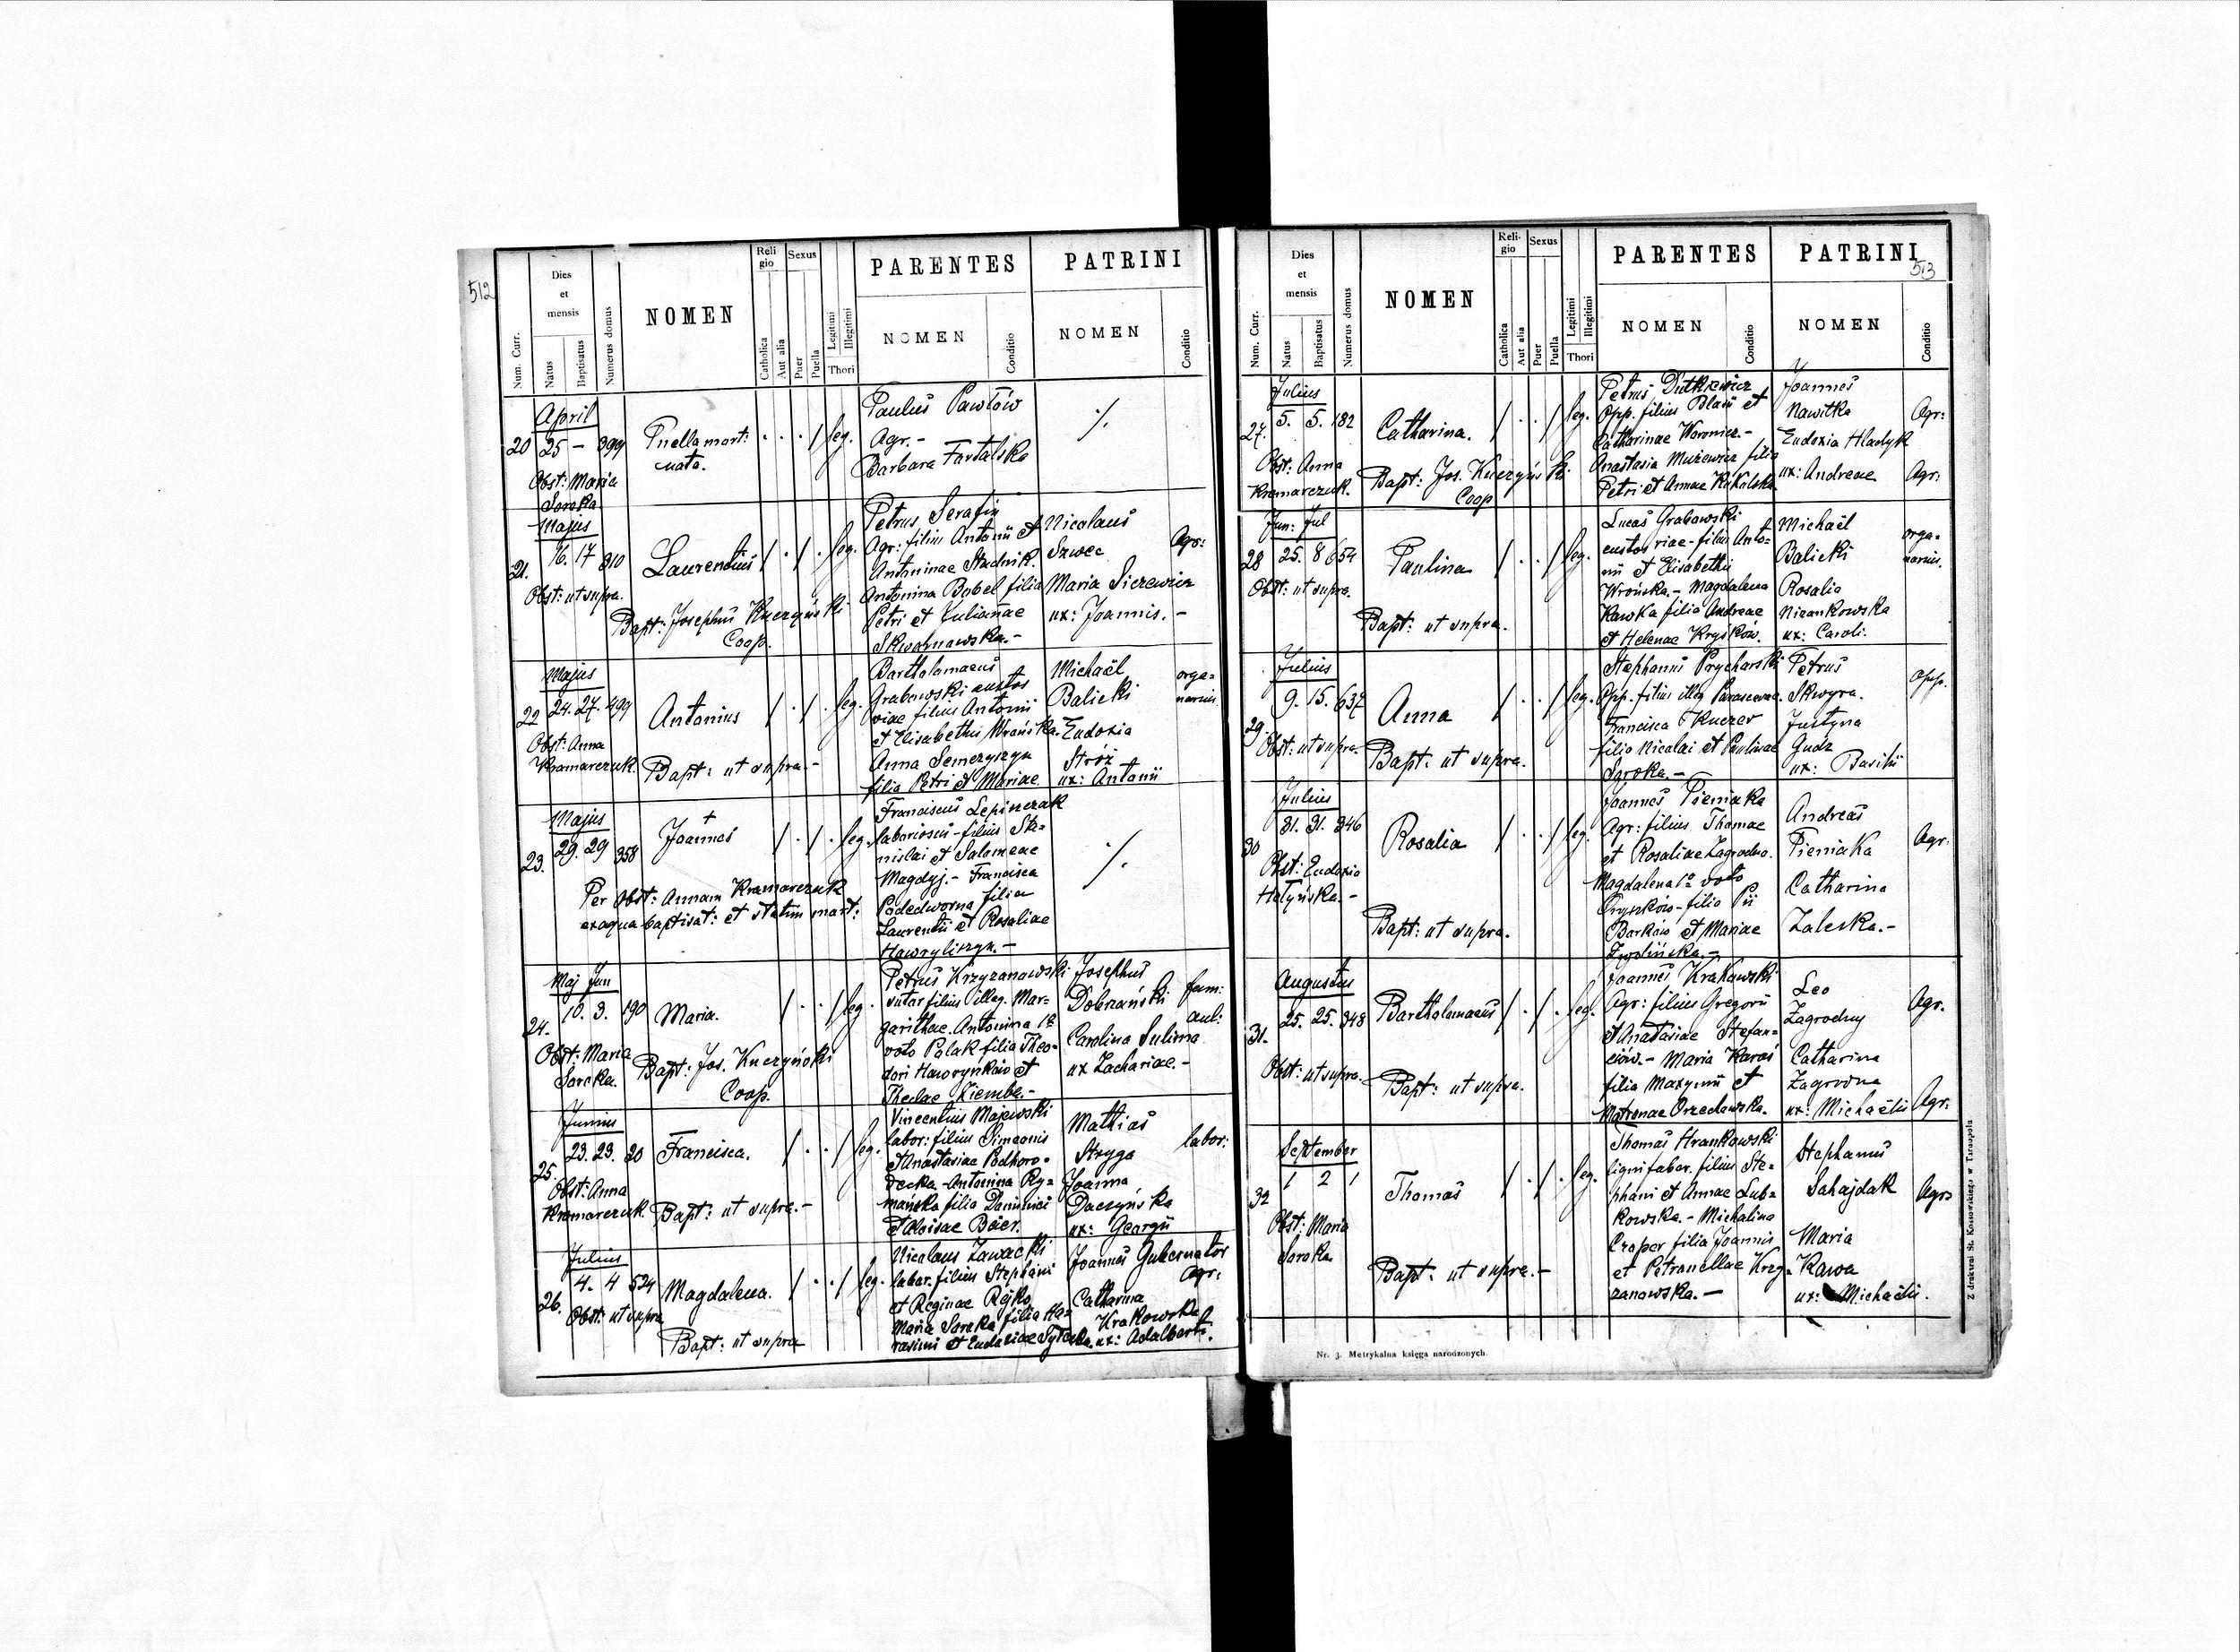 512
Num. Curr.
Dies
et
mensis
Natus
Baptisatus
Numerus domus
NOMEN
Reli
gio
Catholica
Aut alia
Sexus
Puer
Puella
Legitimi
Illegitimi
Thori
PARENTES
NOMEN
Conditio
PATRINI
NOMEN
Conditio
April
20 25 — 399 Puella mort: leg.
nata.
Obst: Maria
Soroka
Paulus Pawłów
Agr.-
Barbara Fartalska
Majus
21. 16. 17 810 Laurentius leg.
Obst: ut supra.
Bapt: Josephus Kuczyński
Coop.
Petrus Serafin
Agr: filius Antonii et
Antoninae Stadnik.
Antonina Bobel filia
Petri et Julianae
Skwarnawska.-
Nicolaus
Szwec Agr:
Maria Siczewicz
ux: Joannis.-
Majus
22 24. 27. 499 Antonius leg.
Obst: Anna
Kramarczuk. Bapt: ut supra.-
Bartholomaeus
Grabowski custos
viae filius Antonii
et Elisabethis Wrońska.
Anna Semczyszyn
filia Petri et Mariae.
Michaël orga=
Balicki narius.
Eudoxia
Stróż
ux: Antonii
Majus
23. 29. 29 358 Joannes leg.
Per Obst: Annam Kramarczuk
ex aqua baptisat: et statim mort:
Franciscus Lepiszczak
laboriosus-filius Sta=
nislai et Salomeae
Magdyj.- Francisca
Podedworna filia
Laurentii et Rosaliae
Hawryliszyn.-
Maj Jun
24. 10. 3. 190 Maria. leg.
Obst: Maria
Soroka. Bapt: Jos. Kuczyński
Coop.
Petrus Krzyzanowski
sutor filius illeg. Mar=
garithae. Antonina 1o
voto Polak filia Theo=
dori Hawrynków et
Theclae Ziemba.-
Josephus
Dobrzański fam:
aul:
Carolina Sulima
ux Zachariae.-
Junius
25. 23. 23. 20 Francisca. leg.
Obst: Anna
Kramarczuk. Bapt: ut supra.-
Vincentius Majewski
labor: filius Simeonis
et Anastasiae Podhoro=
decka.-Antonina Ry=
mańska filia Dominici
et Aloisae Baier.
Mathias
Stryga labor:
Joanna
Daczyńska
ux: Georgii
Julius
26. 4. 4 524 Magdalena. leg.
Obst: ut supra
Bapt: ut supra
Nicolaus Zawacki
labor. filius Stephani
et Reginae Rejko
Maria Soroka filia Ha=
rasimi et Eudoxiae
Joannes Gubernator
Agr:
Catharina
Krakowska
ux: Adalberti.
513
Num. Curr.
Dies
et
mensis
Natus
Baptisatus
Numerus domus
NOMEN
Reli-
gio
Catholica
Aut alia
Sexus
Puer
Puella
Legitimi
Illegitimi
Thori
PARENTES
NOMEN
Conditio
PATRINI
NOMEN
Conditio
Julius
27. 5. 5. 182 Catharina. leg.
Obst: Anna
Kramarczuk. Bapt: Jos. Kuczyński
Coop
Petrus Dutkiewicz
Opp. filius Blasii et
Catharinae Woronicz.-
Anastasia Muzewicz filia
Petri et Annae
Joannes
Nawitka Agr:
Eudoxia Hladyk
ux: Andreae Agr:
Jun: Jul
28 25. 8 654 Paulina leg.
Obst: ut supra.
Bapt: ut supra.
Lucas Grabowski
custos viae-filius Anto=
nii et Elisabethis
Wrońska.- Magdalena
Kawka filia Andreae
et Helenae Kryśków.
Michaël orga=
Balicki narius.
Rosalia
Nizankowska
ux: Caroli.
Julius
29. 9. 15. 637 Anna leg.
Obst: ut supra. Bapt: ut supra.
Stephanus Prycharski
Opp. filius illeg Parascevae.
Francisca Kuczer
filia Nicolai et Paulinae
Soroka.-
Petrus Opp.
Skwyra.
Justyna
Gudz
ux: Basilii
Julius
30 31. 31. 346 Rosalia leg.
Obst: Eudoxia
Hołyńska.-
Bapt: ut supra.
Joannes Pieniaka
Agr: filius Thomae
et Rosaliae Zagrodna.
Magdalena 1o voto
Oryszków-filia Pii
Barków et Mariae
Zwolińska.-
Andreas
Pieniaka Agr.
Catharina
Zaleska.-
Augustus
31. 25. 25. 348 Bartholomaeus leg.
Obst: ut supra. Bapt: ut supra.
Joannes Krakowski
Agr: filius Gregorii
et Anastasiae Stefan=
ciów.- Maria Karaś
filia Maxymii et
Matronae Orzechowska.
Leo
Zagrodny Agr.
Catharina
Zagrodna
ux: Michaëlis Agr:
September
32 1 2 1 Thomas leg.
Obst: Maria
Soroka
Bapt: ut supra.-
Thomas Hrankowski
lignifaber. filius Ste=
phani et Annae Lub=
kowska.- Michalina
Czoper filia Joannis
et Petronellae Krzy=
zanowska.-
Stephanus
Sahajdak Agr.
Maria
Kawa
ux: Michaëlis.
Nr. 3. Metrykalna księga narodzonych.
Z drukarni St. Kossowskiego w Tarnopolu